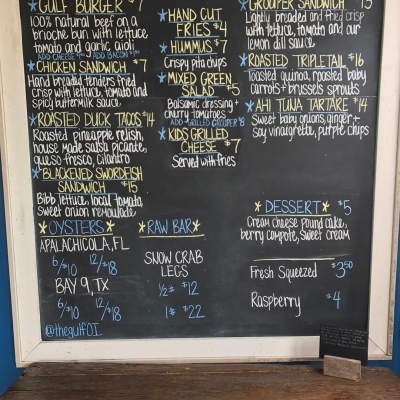 GULF BURGER $7
100% natural beef on a
brioche bun with lettuce
tomato and garlic aioli
ADD CHEESE ADD BACON
CHICKEN SANDWICH $7
Hand breaded tenders fried
crisp with lettuce, tomato and
spicy buttermilk sauce
ROASTED DUCK TACOS $14
Roasted pineapple relish,
house made salsa picante,
queso fresco, cilantro
BLACKENED SWORDFISH
SANDWICH $15
Bibb lettuce, local tomato,
sweet onion remoulade
OYSTERS
APALACHICOLA, FL
6/$10 12/$18
BAY 9, TX
6/$10 12/$18
@thegulfOI
HAND CUT
FRIES $4
HUMMUS $7
Crispy pita chips
MIXED GREEN
SALAD $5
Balsamic dressing +
cherry tomatoes
ADD GRILLED GROUPER $8
KIDS GRILLED
CHEESE $7
Served with fries
RAW BAR
SNOW CRAB
LEGS
1/2# $12
1# $22
GROUPER SANDWICH $15
Lightly breaded and fried crisp
with lettuce, tomato and our
lemon dill sauce
ROASTED TRIPLETAIL $16
Toasted quinoa, roasted baby
carrots + brussels sprouts
AHI TUNA TARTARE $14
Sweet baby onions, ginger +
soy vinaigrette, purple chips
DESSERT $5
Cream cheese pound cake,
berry compote, sweet cream
Fresh Squeezed $3.50
Raspberry $4